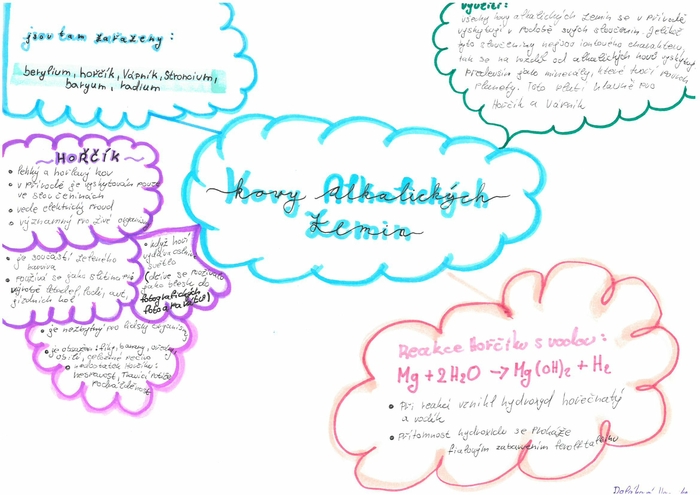 jsou tam zařazeny:
berylium, hořčík, Vápník, Stroncium,
baryum, radium
využití:
všechny kovy alkalických zemin se v přírodě
vyskytují v podobě svých sloučenin. Jelikož
tyto sloučeniny nejsou iontového charakteru,
na rozdíl od alkalických kovů vyskytují
především jako minerály, které tvoří povrch
planety. Toto platí hlavně pro
Hořčík a Vápník
kovy Alkalických
Zemin
~HOŘČÍK~
• lehký a hořlavý kov
• v přírodě je vyskytován pouze
ve sloučeninách
• vede elektrický proud
• významný pro živé organismy
• je součástí zeleného
barviva
• používá se jako slitina na
výrobě letadel, lodí, aut,
jízdních kol
• když hoří
vydává oslnivé
světlo
(dříve se používalo
jako blesk do
fotografických
• je nezbytný pro lidský organismus
• je obsažen: fíky, banány, ořechy,
obilí,
• nedostatek hořčíku:
nespavost, Trávicí Potíže,
Podrážděnost
Reakce Hořčíku s vodou:
Mg + 2H₂O → Mg(OH)₂ + H₂
• Při reakci vznikl hydroxyd hořečnatý
a vodík
• Přítomnost hydroxidu se prokáže
fialovým zabarvením fenolftaleinu